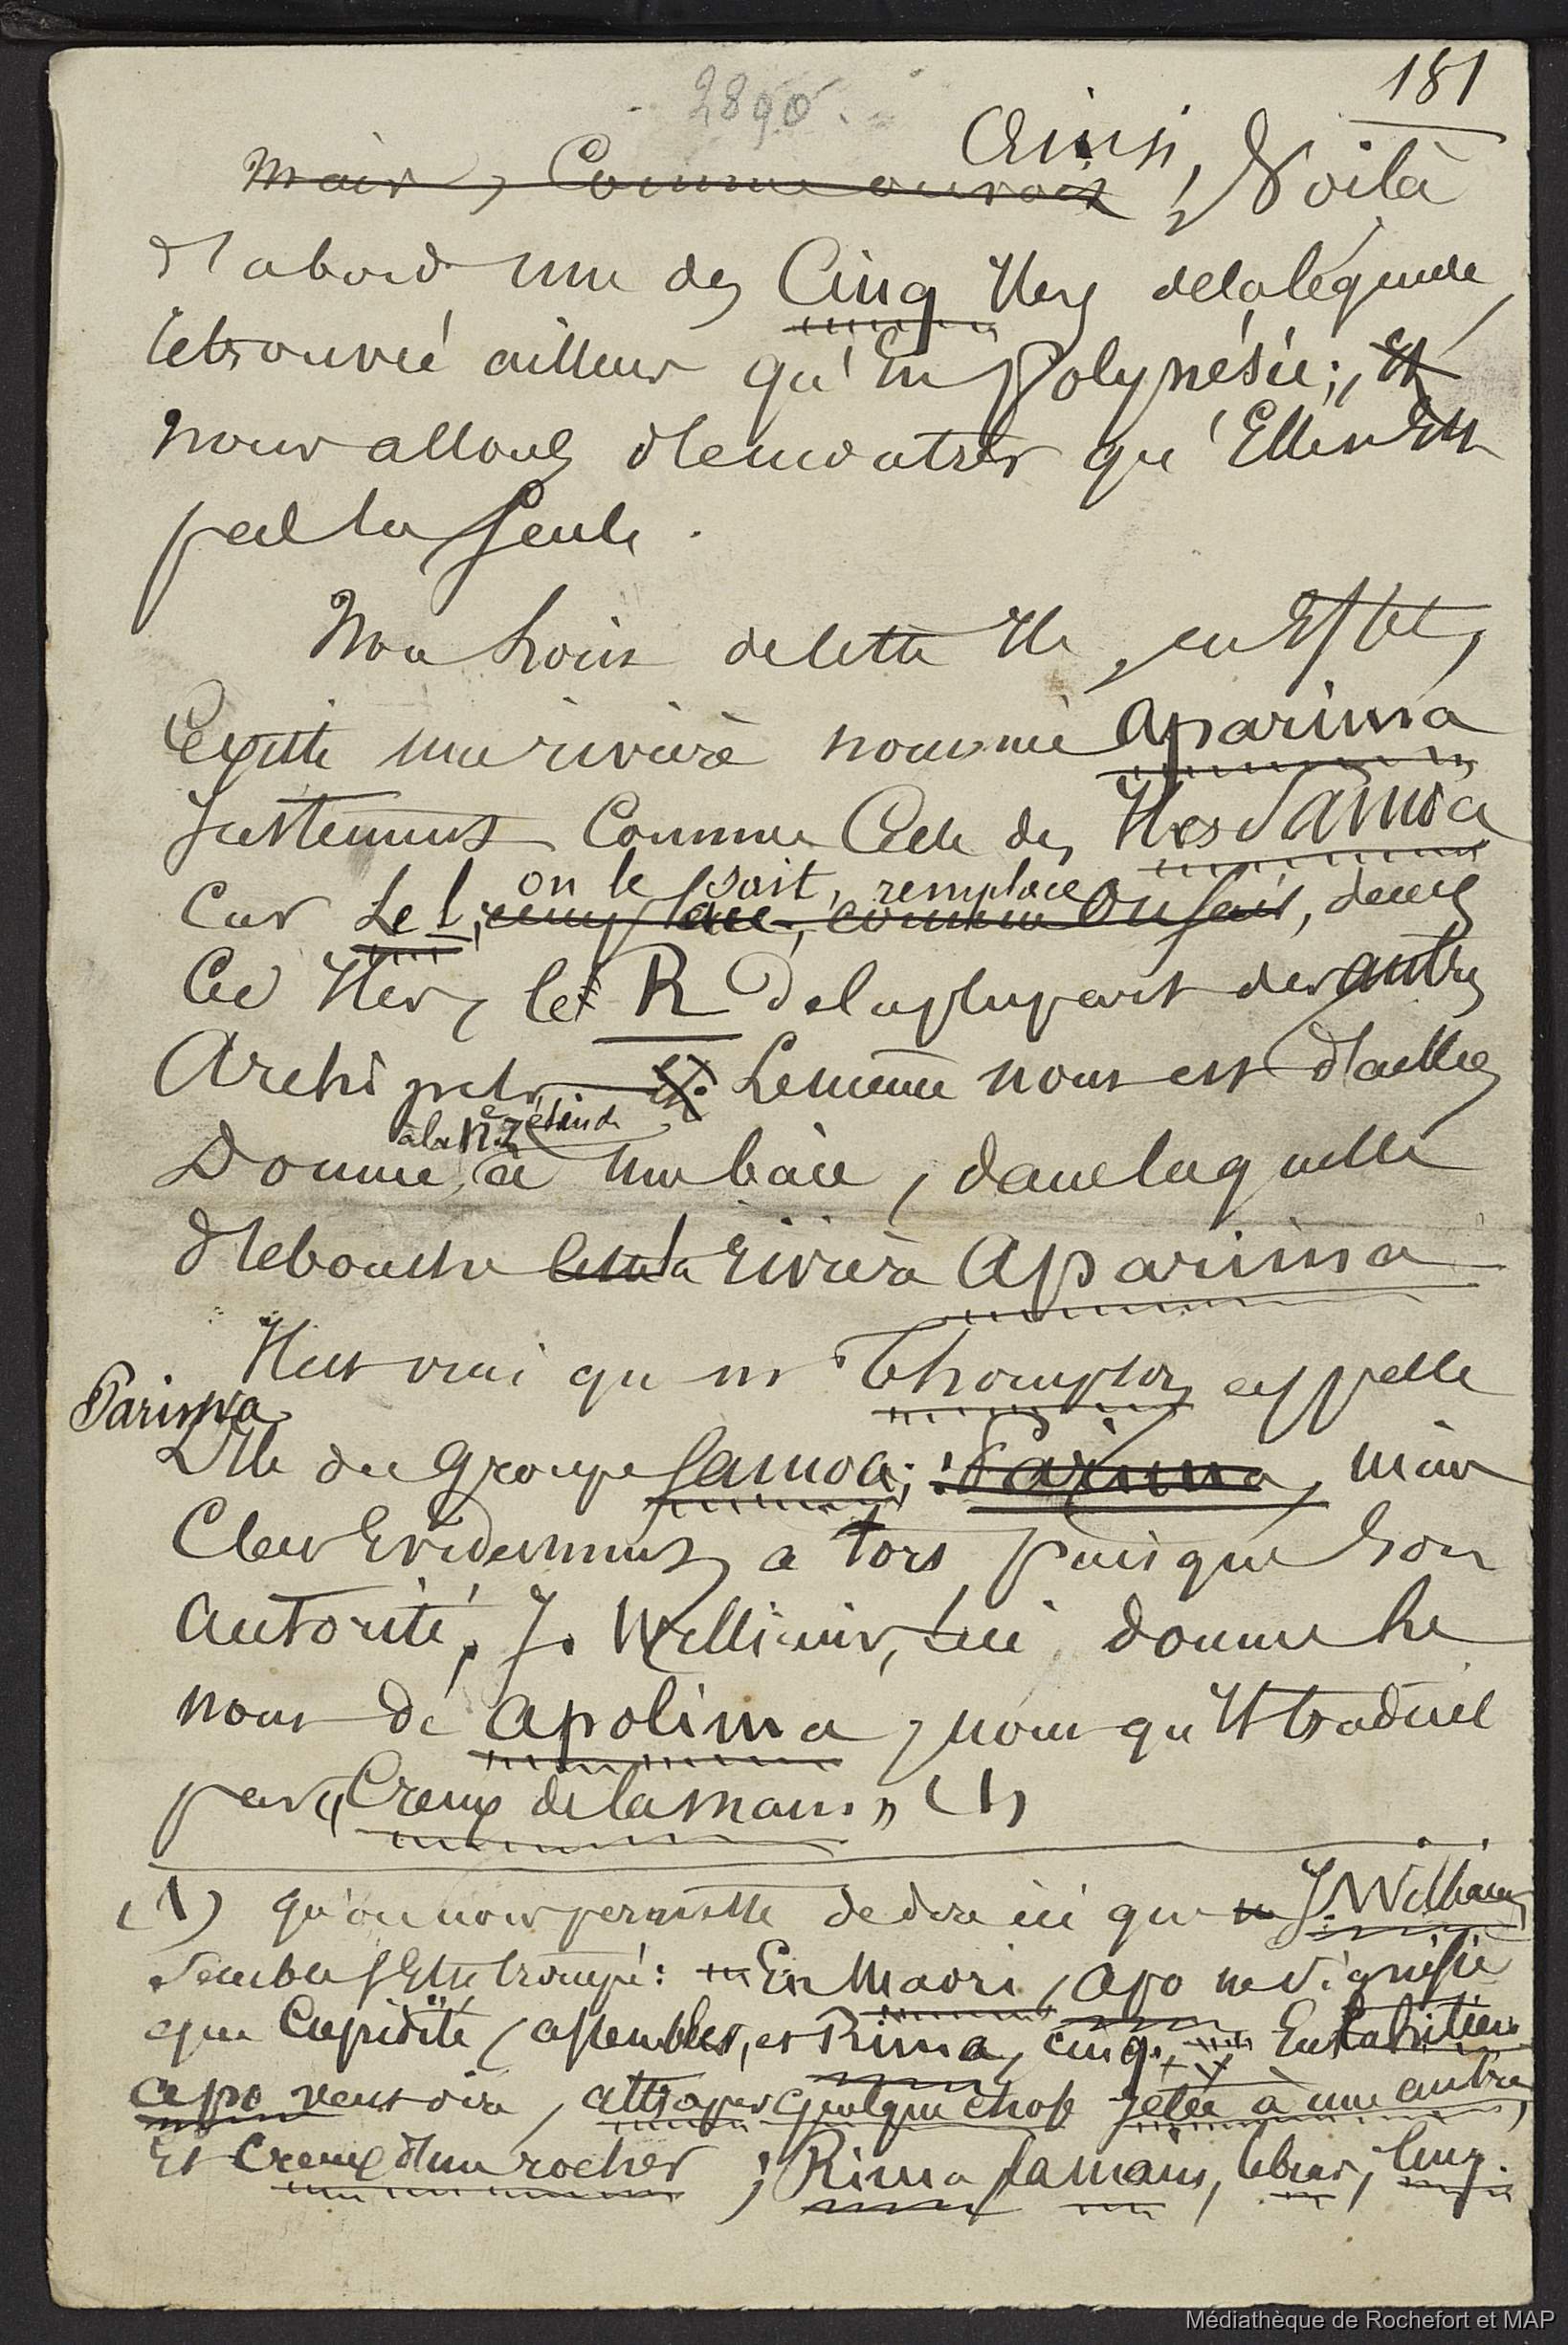 181
2890
Ainsi,
~~Mais, Comme on voit~~, Voilà
d'abord une des Cinq Iles de la légende
retrouvée ailleurs qu'en Polynésie; ~~et~~
nous allons démontrer qu'Elle n'Est
pas la seule.
Non loin de cette Ile, en Effet,
Existe une rivière nommée Aparima
Justement Comme Celle des Iles Samoa
on le sait, remplace
Car Le l, ~~remplace, comme on sait~~, dans
Ces Iles, le R de la plupart des autres
Archipels ~~Et.~~ Le même nom est d'ailleurs
à la Nle Zélande
Donné, à une baie, dans laquelle
débouche ~~cette~~ la rivière Aparima
Il est vrai que Mr Thompson appelle
Parima
L'Ile du groupe Samoa; ~~Parima~~, mais
C'est Evidemment à tors puisque son
Autorité, J. Williams, Lui donne le
nom de Apolima, nom qu'Il traduit
par "Creux de la main" (1)
(1) qu'on nous permette de dire ici que J. Williams
semble s'Etre trompé: En Maori, apo ne signifie
que Cupidité, assembler, et Rima, cinq, En tahitien
apo veut dire, attraper quelque chose jetée à une autre,
Et Creux d'un rocher; Rima la main, le bras, Cinq.
Médiathèque de Rochefort et MAP